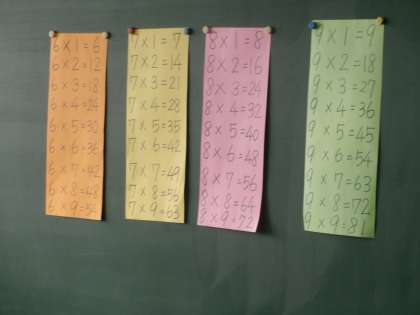 6 × 1 = 6
6 × 2 = 12
6 × 3 = 18
6 × 4 = 24
6 × 5 = 30
6 × 6 = 36
6 × 7 = 42
6 × 8 = 48
6 × 9 = 54
7 × 1 = 7
7 × 2 = 14
7 × 3 = 21
7 × 4 = 28
7 × 5 = 35
7 × 6 = 42
7 × 7 = 49
7 × 8 = 56
7 × 9 = 63
8 × 1 = 8
8 × 2 = 16
8 × 3 = 24
8 × 4 = 32
8 × 5 = 40
8 × 6 = 48
8 × 7 = 56
8 × 8 = 64
8 × 9 = 72
9 × 1 = 9
9 × 2 = 18
9 × 3 = 27
9 × 4 = 36
9 × 5 = 45
9 × 6 = 54
9 × 7 = 63
9 × 8 = 72
9 × 9 = 81